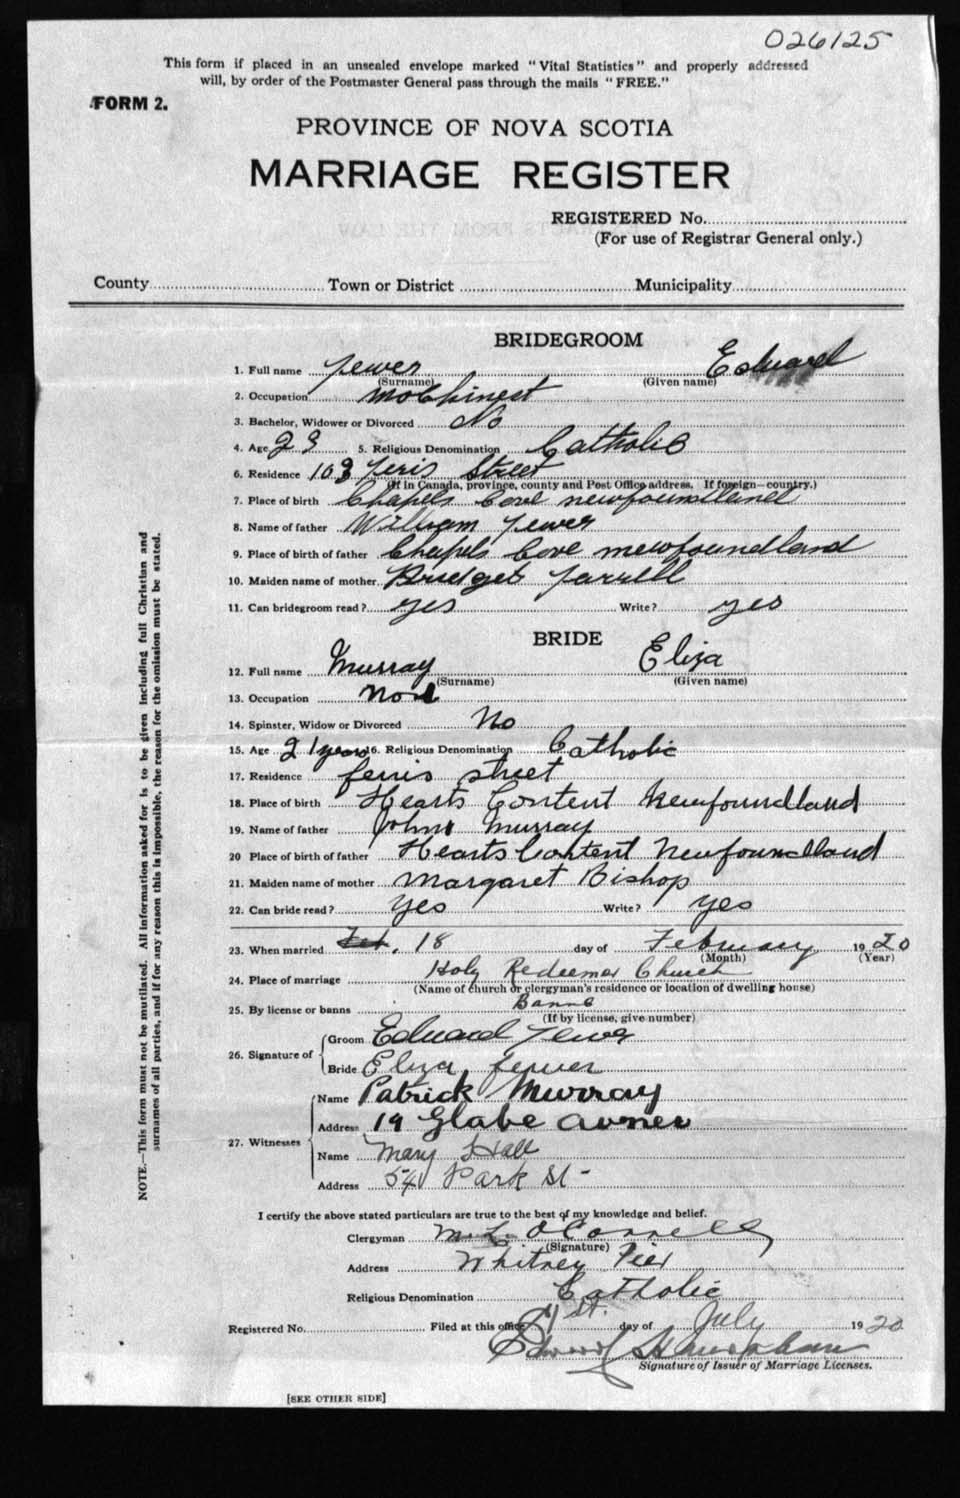 026125
This form if placed in an unsealed envelope marked "Vital Statistics" and properly addressed
will, by order of the Postmaster General pass through the mails "FREE."
FORM 2.
PROVINCE OF NOVA SCOTIA
MARRIAGE REGISTER
REGISTERED No.
(For use of Registrar General only.)
County Town or District Municipality
BRIDEGROOM
1. Full name Fewer Edward
(Surname) (Given name)
2. Occupation Mochinest
3. Bachelor, Widower or Divorced No
4. Age 23 5. Religious Denomination Catholic
6. Residence 103 Feris Street
(If in Canada, province, county and Post Office address. If foreign—country.)
7. Place of birth Chapels Cove newfoundland
8. Name of father William Fewer
9. Place of birth of father Chapels Cove newfoundland
10. Maiden name of mother Bridget Farrell
11. Can bridegroom read? yes Write? yes
BRIDE
12. Full name Murray Eliza
(Surname) (Given name)
13. Occupation
14. Spinster, Widow or Divorced No
15. Age 21 years 16. Religious Denomination Catholic
17. Residence ferris street
18. Place of birth Hearts Content Newfoundland
19. Name of father John Murray
20 Place of birth of father Hearts Content Newfoundland
21. Maiden name of mother Margaret Bishop
22. Can bride read? yes Write? yes
23. When married Feb. 18 day of February 1920
(Month) (Year)
24. Place of marriage Holy Redeemer Church
(Name of church or clergyman's residence or location of dwelling house)
25. By license or banns Banns
(If by license, give number)
26. Signature of Groom Edward Fewer
Bride Eliza fewer
27. Witnesses Name Patrick Murray
Address 19 Glabe avnev
Name Mary Hall
Address 54 Park St-
I certify the above stated particulars are true to the best of my knowledge and belief.
Clergyman O'Connell
(Signature)
Address Whitney Pier
Religious Denomination Catholic
Registered No. Filed at this office 1st. day of July 1920
Signature of Issuer of Marriage Licenses.
[SEE OTHER SIDE]
NOTE.—This form must not be mutilated. All information asked for is to be given including full Christian and
surnames of all parties, and if for any reason this is impossible, the reason for the omission must be stated.